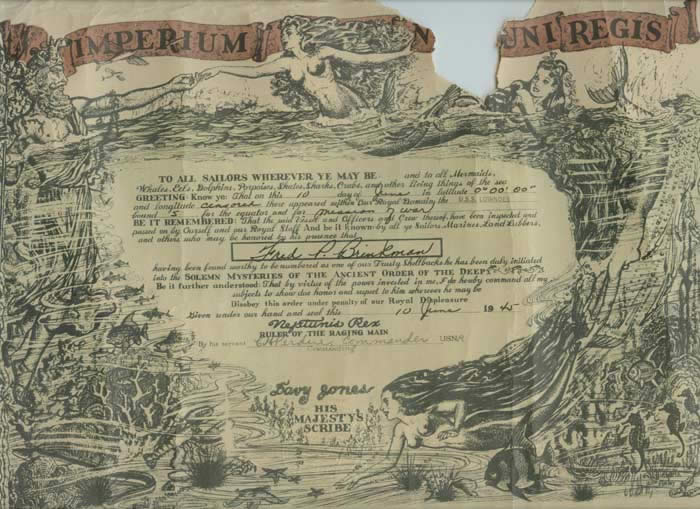 IMPERIUM N UNI REGIS
TO ALL SAILORS WHEREVER YE MAY BE and to all Mermaids,
Whales, Eels, Dolphins, Porpoises, Skates, Sharks, Crabs, and other living things of the sea
GREETING: Know ye: That on this 10 day of June in latitude 0°00'00"
and longitude censored there appeared within Our Royal Domain the U.S.S. LOWNDES
bound S for the equator and for mission of war
BE IT REMEMBERED: That the said Vessel and Officers and Crew thereof have been inspected and
passed on by Ourself and our Royal Staff. And be it known: by all ye Sailors, Marines, Land Lubbers,
and others who may be honored by his presence that
Fred P. Brinkman
having been found worthy to be numbered as one of our Trusty Shellbacks he has been duly initiated
into the SOLEMN MYSTERIES OF THE ANCIENT ORDER OF THE DEEP
Be it further understood: That by virtue of the power invested in me, I do hereby command all my
subjects to show due honor and respect to him wherever he may be
Disobey this order under penalty of our Royal Displeasure
Given under our hand and seal this 10 June 1945
Neptunis Rex
RULER OF THE RAGING MAIN
By his servant Commander USNR
COMMANDING
Davy Jones
HIS
MAJESTY'S
SCRIBE